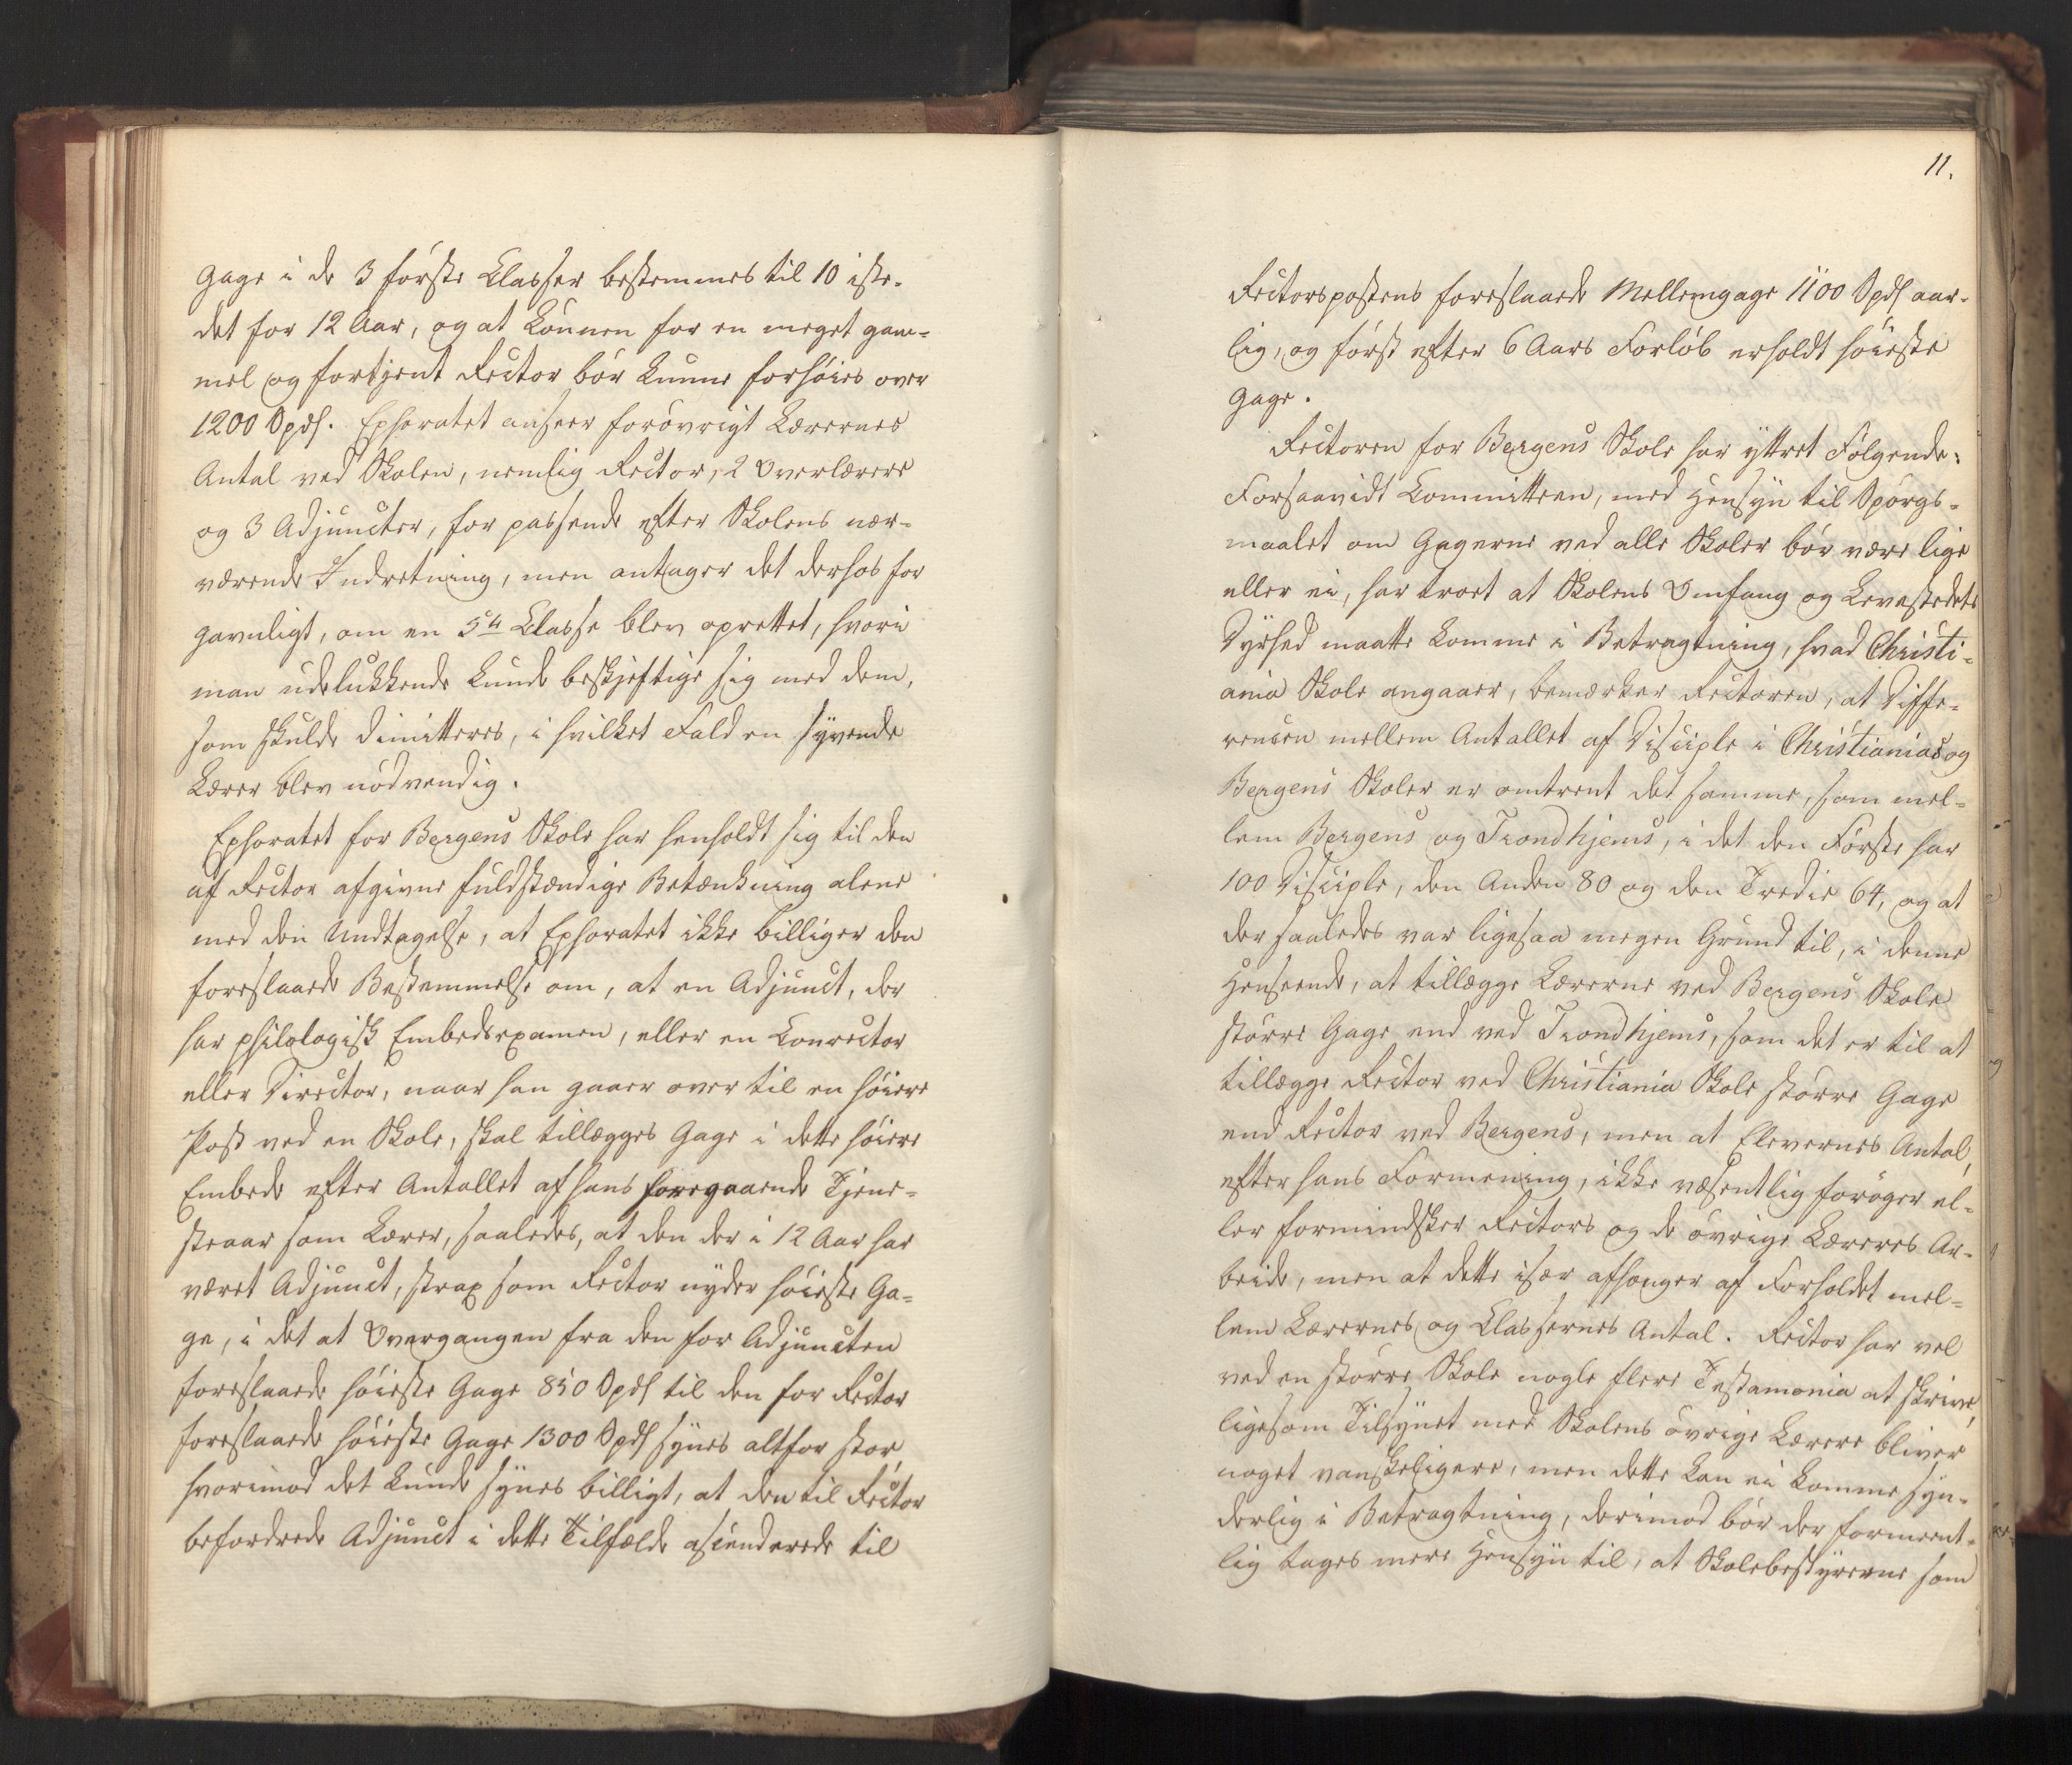 Gage i de 3 første Classer bestemmes til 10 iste-
det for 12 Aar, og at Lønnen for en meget gam-
mel og fortjent Rector bør kunne forhøies over
1200 Spdl. Ephoratet anseer forøvrigt Lærernes
Antal ved Skolen, nemlig Rector, 2 Overlærere
og 3 Adjuncter, for passende efter Skolens nær-
værende Indretning, men antager det derhos for
gavnligt, om en 5te Classe blev oprettet, hvori
man udelukkende kunde beskjeftige sig med dem,
som skulde dimitteres, i hvilket Fald en syvende
Lærer blev nødvendig.
Ephoratet for Bergens Skole har henholdt sig til den
af Rector afgivne fuldstændige Betænkning alene
med den Undtagelse, at Ephoratet ikke billiger den
foreslaaede Bestemmelse om, at en Adjunct, der
har philologisk Embedsexamen, eller en Conrector
eller Director, naar han gaaer over til en høiere
Post ved en Skole, skal tillægges Gage i dette høiere
Embede efter Antallet af hans foregaaende Tjene-
steaar som Lærer, saaledes, at den der i 12 Aar har
været Adjunct, strax som Rector nyder høieste Ga-
ge, i det at Overgangen fra den for Adjuncten
foreslaaede høieste Gage 850 Spdl til den for Rector
foreslaaede høieste Gage 1300 Spdl synes altfor stor,
hvorimod det kunde synes billigt, at den til Rector
befordrede Adjunct i dette Tilfælde ascenderede til
11.
Rectorspostens foreslaaede Mellemgage 1100 Spdl aar-
lig, og først efter 6 Aars Forløb erholdt høieste
Gage.
Rectoren for Bergens Skole har yttret Følgende:
Forsaavidt Committeen, med Hensyn til Spørgs-
maalet om Gagerne ved alle Skoler bør være lige
eller ei, har troet at Skolens Omfang og Levestedets
Dyrhed maatte komme i Betragtning, hvad Christi-
ania Skole angaaer, bemærker Rectoren, at Diffe-
rencen mellem Antallet af Disciple i Christianias og
Bergens Skoler er omtrent det samme, som mel-
lem Bergens og Trondhjems, i det den Første har
100 Disciple, den Anden 80 og den Tredie 64, og at
der saaledes var ligesaa megen Grund til, i denne
Henseende, at tillægge Lærerne ved Bergens Skole
større Gage end ved Trondhjems, som det er til at
tillægge Rector ved Christiania Skole større Gage
end Rector ved Bergens, men at Elevernes Antal,
efter hans Formening, ikke væsentlig forøger el-
ler formindsker Rectors og de øvrige Læreres Ar-
beide, men at dette især afhænger af Forholdet mel-
lem Lærernes og Classernes Antal. Rector har vel
ved en større Skole nogle flere Testamonia at skrive,
ligesom Tilsynet med Skolens øvrige Lærere bliver
noget vanskeligere, men dette kan ei komme syn-
derlig i Betragtning, derimod bør der formeent-
lig tages mere Hensyn til, at Skolebestyrerne som